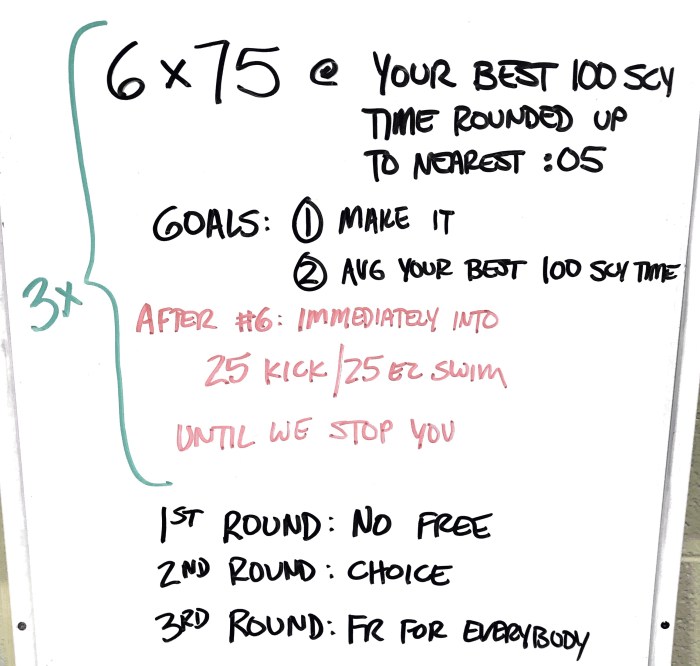 6 x 75 @ YOUR BEST 100 SCY
TIME ROUNDED UP
TO NEAREST :05
GOALS: ① MAKE IT
② AVG YOUR BEST 100 SCY TIME
3x
AFTER #6: IMMEDIATELY INTO
25 KICK/25 EZ SWIM
UNTIL WE STOP YOU
1ST ROUND: NO FREE
2ND ROUND: CHOICE
3RD ROUND: FR FOR EVERYBODY